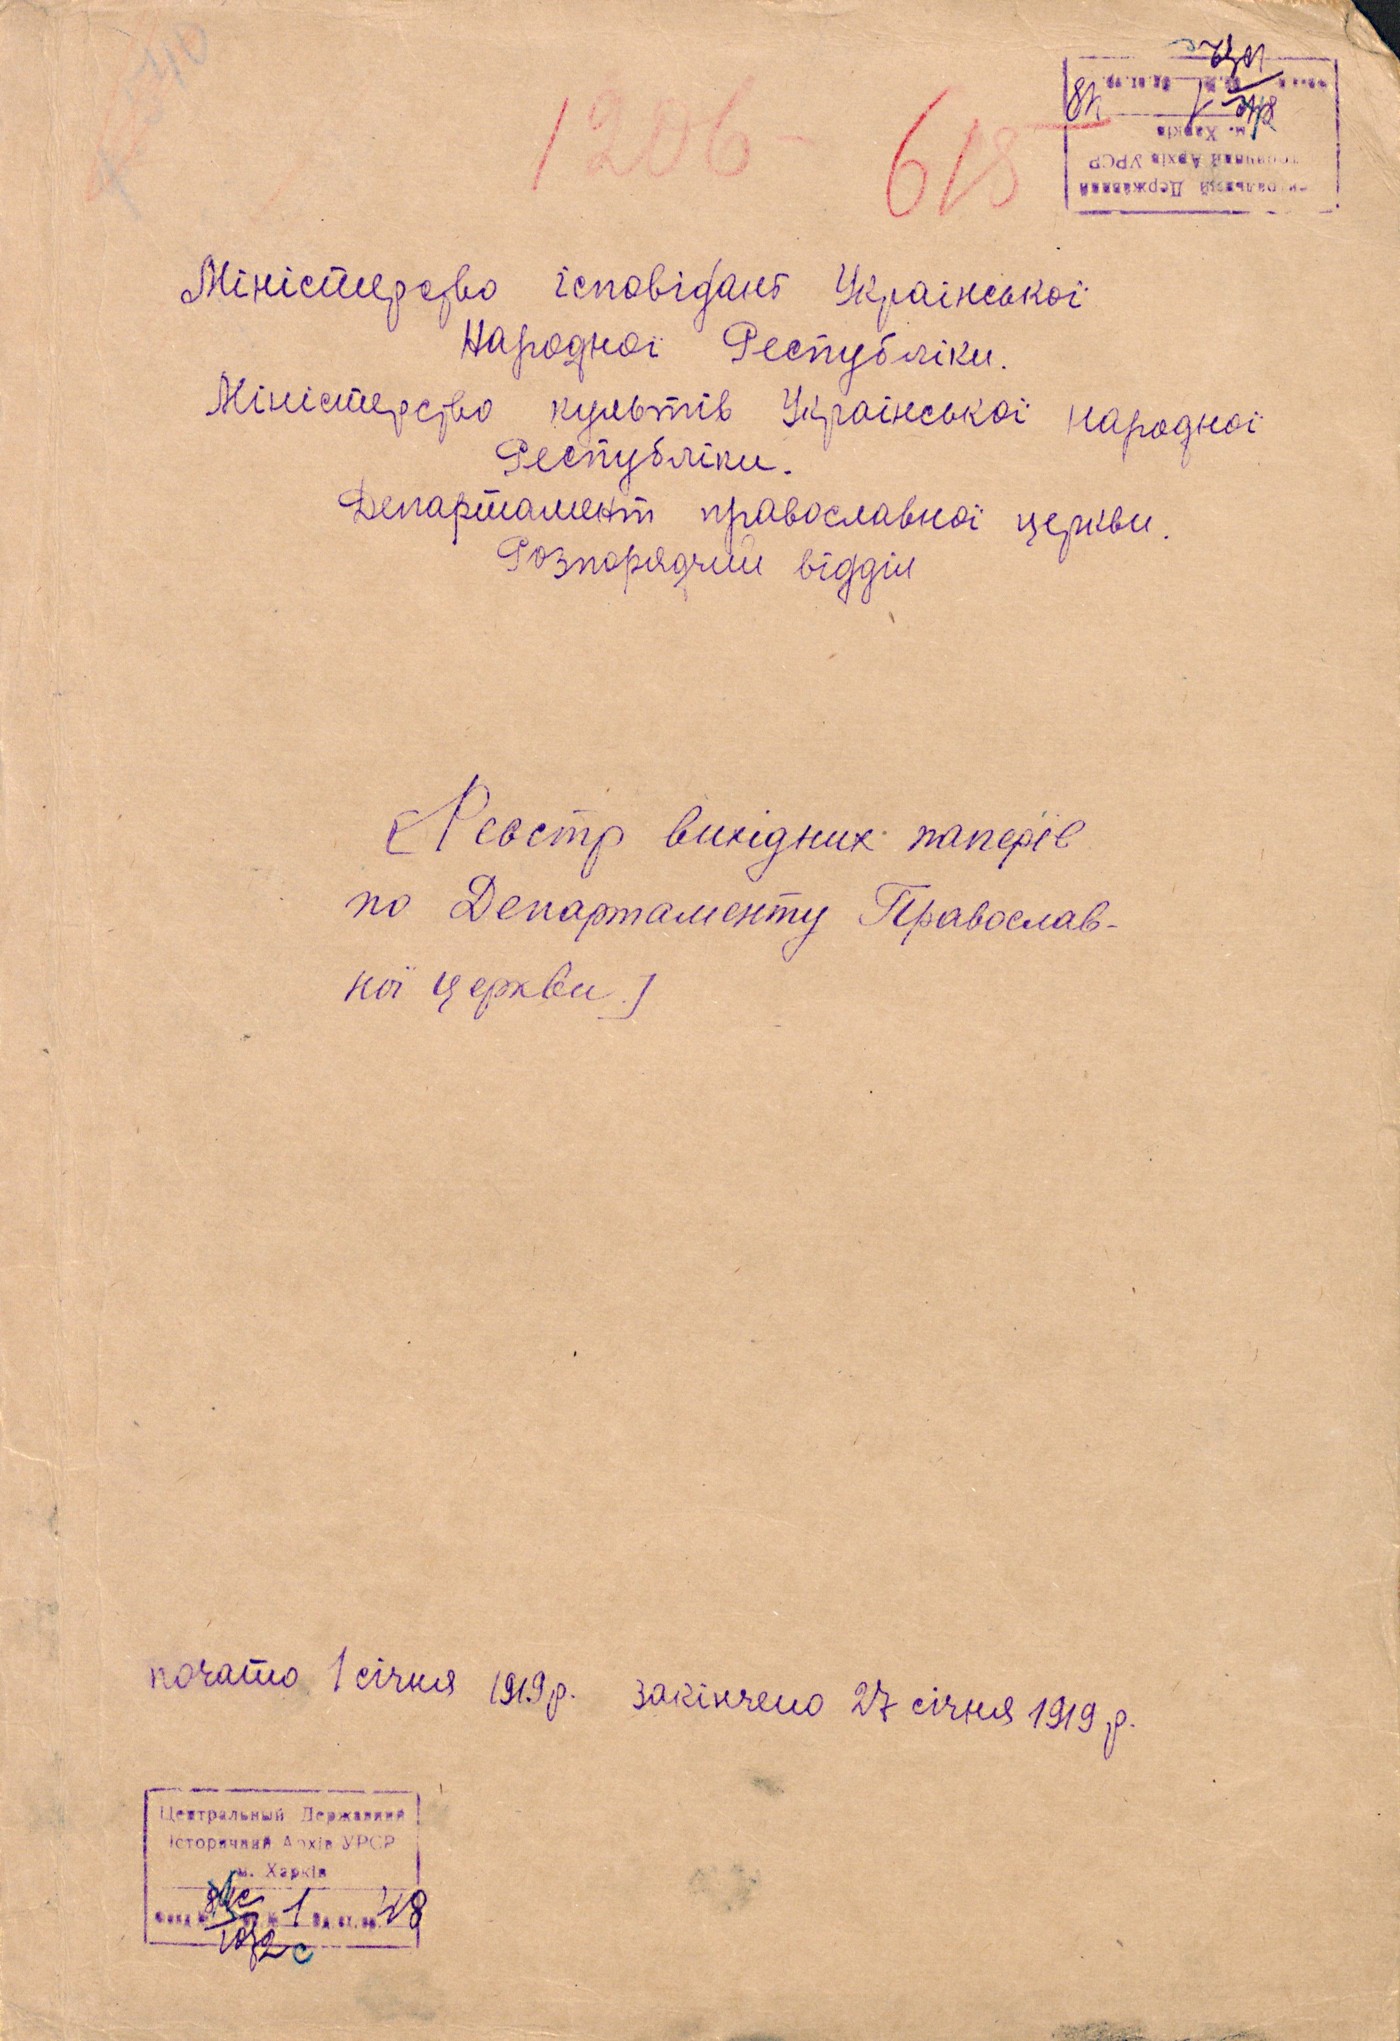 1206 - 618
Міністерство ісповідань Української
Народної Республіки.
Міністерство культів Української народної
Республіки.
Департамент православної церкви.
Розпорядчий відділ
[Реєстр вихідних паперів
по Департаменту Православ-
ної церкви]
почато 1 січня 1919 р. закінчено 27 січня 1919 р.
Центральный Державний
Історичний Архів УРСР
м. Харків
Фонд № 1 Од. зб. 48